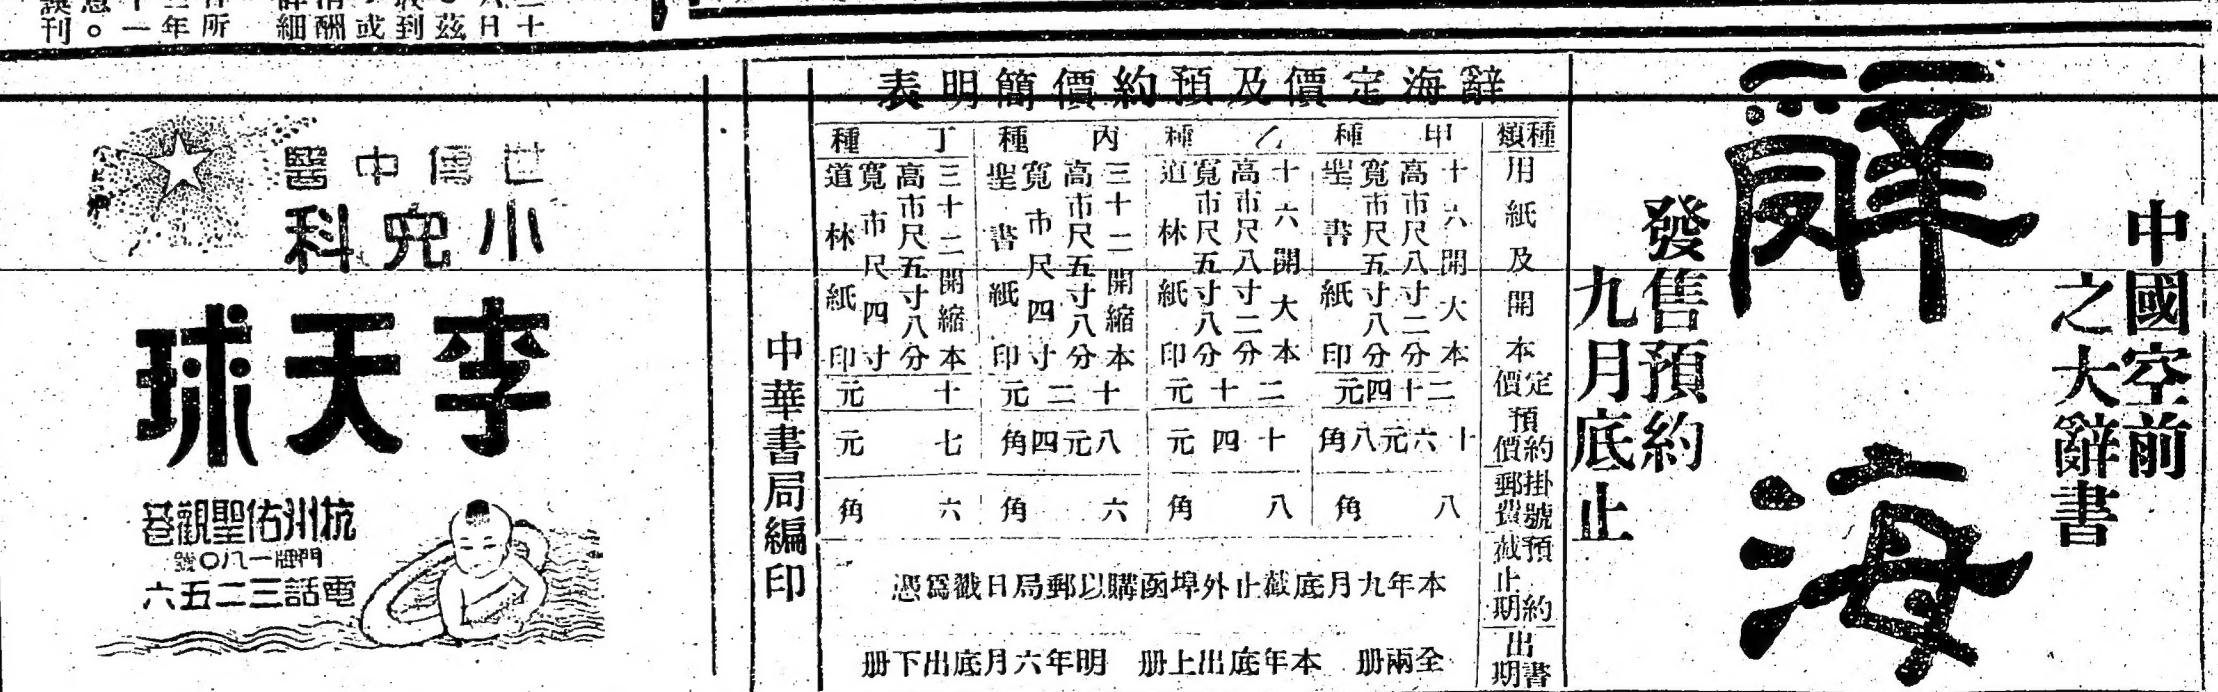 中國空前
之大辭書
辭海
發售預約
九月底止
辭海定價及預約價簡明表
種類 甲種 乙種 丙種 丁種
用紙及開本
十六開大本
高市尺八寸二分
寬市尺五寸八分
聖書紙印
十六開大本
高市尺八寸二分
寬市尺五寸八分
道林紙印
三十二開縮本
高市尺五寸八分
寬市尺四寸
聖書紙印
三十二開縮本
高市尺五寸八分
寬市尺四寸
道林紙印
定價 二十四元 二十元 十二元 十元
預約價 十六元八角 十四元 八元四角 七元
掛號郵費 八角 八角 六角 六角
預約截止期 本年九月底截止外埠函購以郵局日戳爲憑
出書期 全兩册 本年底出上册 明年六月底出下册
中華書局編印
世傳中醫
小兒科
李天球
杭州佑聖觀巷
門牌一八〇號
電話三二五六